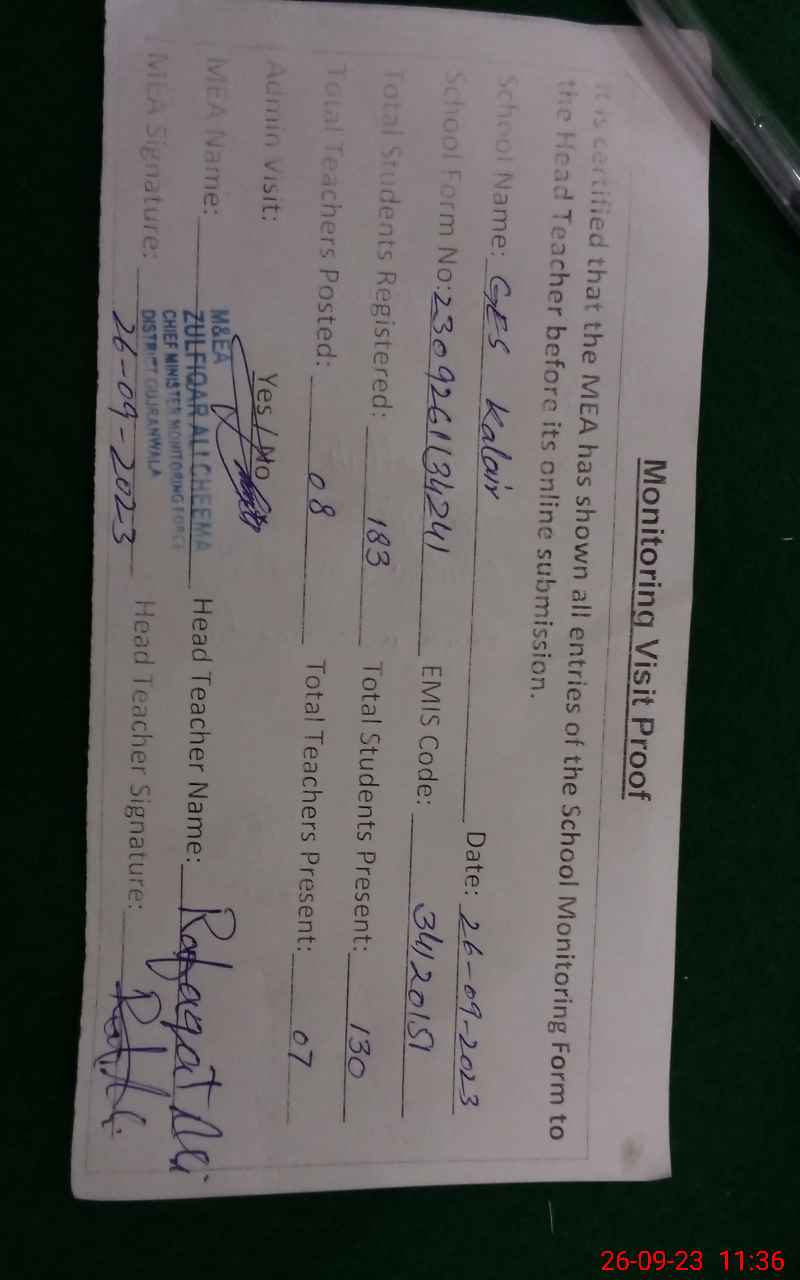 Monitoring Visit Proof
It is certified that the MEA has shown all entries of the School Monitoring Form to
the Head Teacher before its online submission.
School Name: GES Kalair Date: 26-09-2023
School Form No: EMIS Code: 34120151
Total Students Registered: 183 Total Students Present: 130
Total Teachers Posted: 08 Total Teachers Present: 07
Admin Visit: Yes / No
M&EA
MEA Name: ZULFIQAR ALI CHEEMA Head Teacher Name: Rafaqat Ali
CHIEF MINISTER MONITORING FORCE
MEA Signature: DISTRICT GUJRANWALA Head Teacher Signature:
26-09-2023
26-09-23 11:36